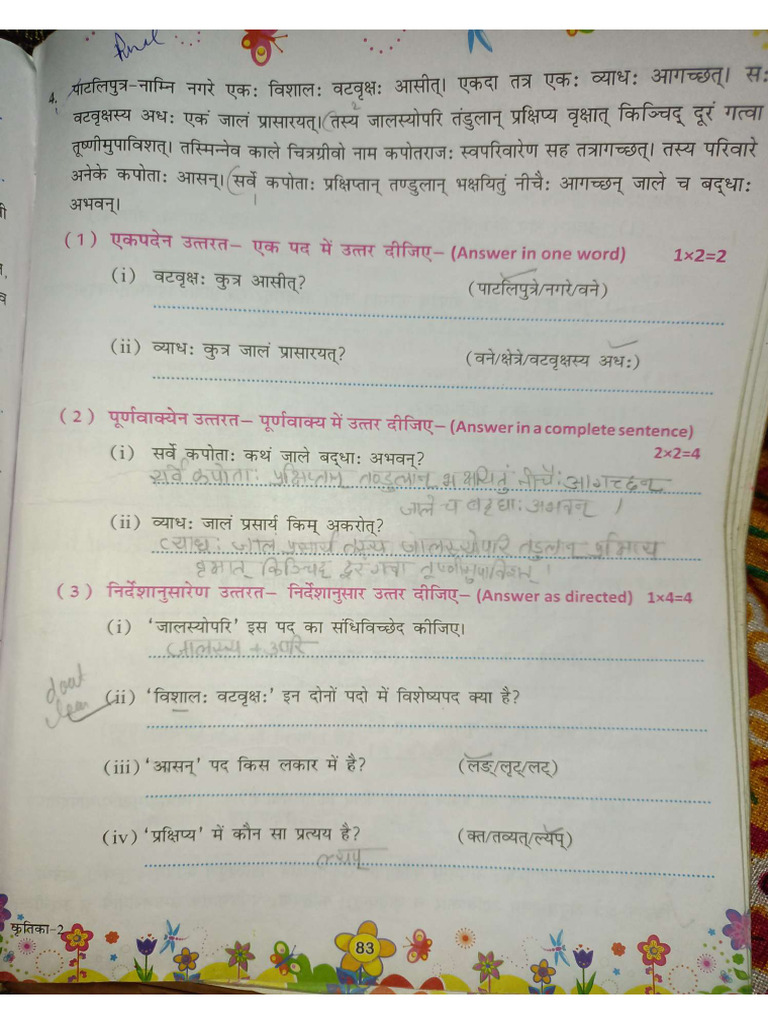 4. पाटलिपुत्र-नाम्नि नगरे एकः विशालः वटवृक्षः आसीत्। एकदा तत्र एकः व्याधः आगच्छत्। सः
वटवृक्षस्य अधः एकं जालं प्रासारयत्। तस्य जालस्योपरि तंडुलान् प्रक्षिप्य वृक्षात् किञ्चिद् दूरं गत्वा
तूष्णीमुपाविशत्। तस्मिन्नेव काले चित्रग्रीवो नाम कपोतराजः स्वपरिवारेण सह तत्रागच्छत्। तस्य परिवारे
अनेके कपोताः आसन्। सर्वे कपोताः प्रक्षिप्तान् तण्डुलान् भक्षयितुं नीचैः आगच्छन् जाले च बद्धाः
अभवन्।
(1) एकपदेन उत्तरत– एक पद में उत्तर दीजिए– (Answer in one word) 1×2=2
(i) वटवृक्षः कुत्र आसीत्? (पाटलिपुत्रे/नगरे/वने)
(ii) व्याधः कुत्र जालं प्रासारयत्? (वने/क्षेत्रे/वटवृक्षस्य अधः)
(2) पूर्णवाक्येन उत्तरत– पूर्णवाक्य में उत्तर दीजिए– (Answer in a complete sentence)
(i) सर्वे कपोताः कथं जाले बद्धाः अभवन्? 2×2=4
सर्वे कपोताः प्रक्षिप्तान् तण्डुलान् भक्षयितुं नीचैः आगच्छन्
जाले च बद्धाः अभवन् ।
(ii) व्याधः जालं प्रसार्य किम् अकरोत्?
व्याधः जालं प्रसार्य तस्य जालस्योपरि तंडुलान्
किञ्चिद् दूरं गत्वा
(3) निर्देशानुसारेण उत्तरत– निर्देशानुसार उत्तर दीजिए– (Answer as directed) 1×4=4
(i) 'जालस्योपरि' इस पद का संधिविच्छेद कीजिए।
जालस्य + उपरि
(ii) 'विशालः वटवृक्षः' इन दोनों पदो में विशेष्यपद क्या है?
(iii) 'आसन्' पद किस लकार में है? (लङ्/लृट्/लट्)
(iv) 'प्रक्षिप्य' में कौन सा प्रत्यय है? (क्त/तव्यत्/ल्यप्)
ल्यप्
कृतिका-2
83